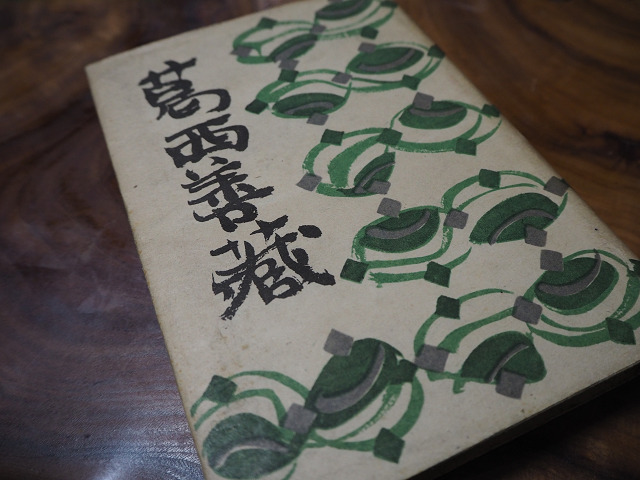 葛西善藏